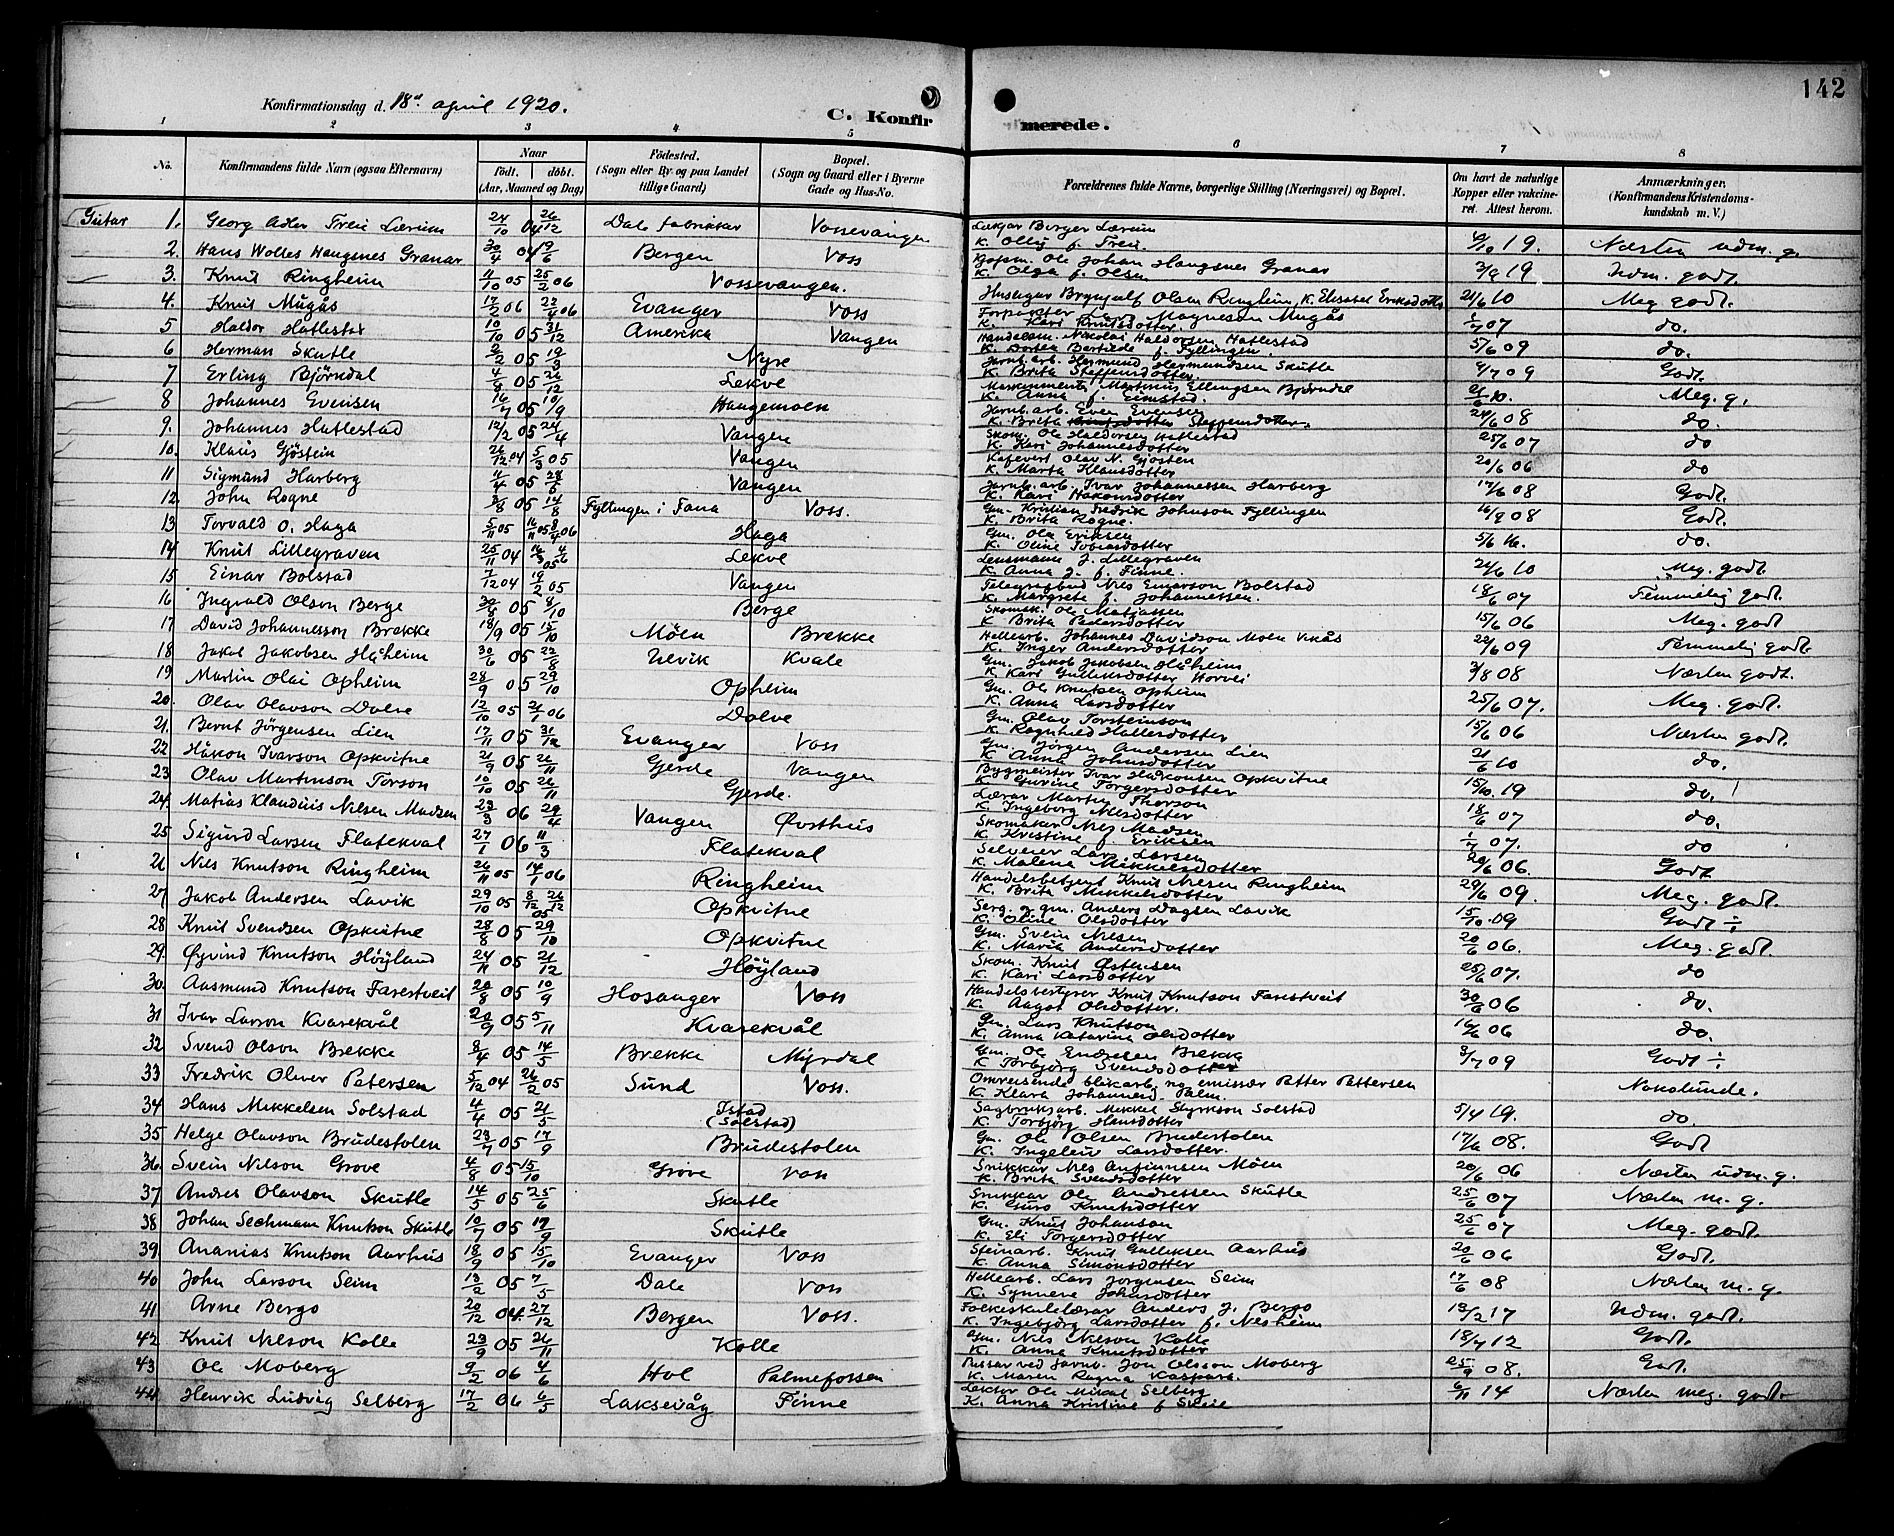 142
Konfirmationsdag d. 18de april 1920.
C. Konfirmerede.
1 2 3 4 5 6 7 8
No. Konfirmandens fulde Navn (ogsaa Efternavn) Naar født. døbt. (Aar, Maaned og Dag) Födested. (Sogn eller By og paa Landet tillige Gaard) Bopæl. (Sogn og Gaard eller i Byerne Gade og Hus-No. Forældrenes fulde Navne, borgerlige Stilling (Næringsvei) og Bopæl. Om havt de naturlige Kopper eller vakcineret. Attest herom. Anmærkninger. (Konfirmandens Kristendomskundskab m. V.)
Gutar 1. Georg Adler Freii Lærum 24/10 04 26/12 Dale fabrikker Vossevangen Birger Lærum K. Olly f. Freii. 6/10 19. Næsten udm. g.
2. Hans Woltes Haugsnes Granar 30/4 04 19/6 Bergen Voss Kjøpm. Ole Johan Haugsnes Granar K. Olga f. Olsen 3/9 19 Udm. godt.
3. Knut Ringheim 11/10 05 25/2 06 Vossevangen. Huslagar Brynjulf Olsen Ringheim, K. Elisabet Eriksdotter 21/6 10 Meg godt.
4. Knut Mugås 17/2 06 22/4 06 Evanger Voss Forpakter Lars Magnesen Mugås K. Kari Knutsdotter. 1/7 07 do.
5 Haldor Hatlestad 10/10 05 31/12 Amerika Vangen Handelsm. Nikolai Haldorsen Hatlestad K. Dortea Bertilde f. Fyllingen. 5/6 09 do.
6 Herman Skutle 2/2 05 19/3 Nyre Jernb. arb. Hermund Hermundsen Skutle K. Brita Steffensdotter. 4/7 09 Godt.
7 Erling Björndal 4/8 05 26/12 Lekve Martinus Ellingsen Björndal K. Anna f. Eimstad. 21/6 10. Meg. g.
8 Johannes Evensen 16/7 05 10/9 Haugemoen Jarnb. arb. Even Evensen K. Brita Steffensdotter. 24/6 08 do.
9. Johannes Hatlestad 12/2 05 24/4 Vangen Skom. Ole Haldorsen Hatlestad K. Kari Johannesdotter 25/6 07 do
10. Klaus Gjöstein 26/12 04 5/3 05 Vangen Kafevert Olav N. Gjöstein K. Marta Klausdotter 20/6 06 do
11 Sigmund Harberg 11/4 05 28/5 Vangen Jarnb. arb. Ivar Johannessen Harberg K. Kari Hakonsdotter 17/6 08 Godt.
12. John Rogne 3/8 05 14/8 Fyllingen i Fana Voss. Gm. Kristian Fredrik Johnson Fyllingen K. Brita Rogne. 16/9 08 Godt.
13 Torvald O. Haga 5/11 05 16/11 05 8/4 06 Haga Gm. Ole Eriksen K. Oline Tobiasdotter 5/6 16. do.
14 Knut Lillegraven 25/11 04 16/3 05 4/6 Lekve Lensmann J. Lillegraven K. Anna J. f. Finne. 24/6 10 Meg. godt
15 Einar Bolstad 7/12 04 19/2 05 Vangen Telegrafbud Nils Einarson Bolstad K. Margrete f. Johannessen. 18/6 07 Temmelig godt.
16 Ingvald Olson Berge 30/8 05 8/10 Berge Skomak. Ole Matiassen K. Brita Pedersdotter 15/6 06 Meg. godt
17 David Johannesson Brekke 18/9 05 15/10 Möen Brekke Hellearb. Johannes Davidson Moen Vikås K. Inger Andersdotter 22/6 09 Temmelig godt.
18 Jakob Jakobsen Håheim 30/6 05 22/8 Ulvik Kvale Gm. Jakob Jakobsen Håheim K. Kari Gulleiksdotter Horvei 3/8 08 Næsten godt.
19 Martin Olai Opheim 28/9 05 29/10 Opheim Gm. Ole Knutsen Opheim K. Anna Larsdotter 25/6 07. Meg. godt.
20. Olav Olavson Dolve 12/10 05 21/1 06 Dolve Gm. Olav Torsteinson K. Ragnhild Hallesdotter 15/6 06 Næsten godt.
21. Bernt Jörgensen Lien 17/11 05 31/12 Evanger Voss Gm. Jörgen Andersen Lien K. Anna Johnsdotter 21/6 10 do.
22 Håkon Ivarson Opkvitne 21/9 05 26/11 Gjerde Vangen Bygmeister Ivar Haakonsen Opkvitne K. Gurine Torgersdotter 15/10. 19 do. !
23 Olav Martinson Torson 10/10 05 26/11 Gjerde. Lærar Martin Thorson K. Ingeborg Nilsdotter 18/6 07 do.
24. Matias Klaudius Nilsen Madsen 23/3 06 29/4 Vangen Øvsthus Skomaker Nils Madsen K. Kristine f. Eriksen 1/7 07. do
25 Sigurd Larsen Flatekval 27/1 06 11/3 Flatekval Selveier Lars Larsen K. Malena Mikkelsdotter 20/6 06. Godt
26 Nils Knutson Ringheim 26/11 05 14/1 06 Ringheim Handelsbetjent Knut Nielsen Ringheim K. Brita Mikkelsdotter 29/6 09. Meg. godt.
27 Jakob Andersen Lavik 29/10 05 8/12 26/12 05 Opkvitne Serg. og gm. Anders Dagsen Lavik K. Oline Olsdotter 15/10. 09 Godt ÷
28 Knut Svendsen Opkvitne 28/8 05 29/10 Opkvitne Gm. Svein Nilsen K. Marita Andersdotter 20/6 06. Meg. godt.
29. Øyvind Knutson Höyland 24/11 05 21/12 Höyland Skom. Knut Østensen K. Kari Larsdotter 25/6 07. do
30. Aasmund Knutson Farestveit 20/8 05 10/9 Hosanger Voss Handelsbestyrer Knut Knutson Farestveit K. Aagot Olsdotter. 30/6 06 do.
31 Ivar Larson Kvarekvål 20/9 05 5/11 Kvarekvål Gm. Lars Knutson K. Anna Katarina Olsdotter 16/6 06 do.
32 Svend Olson Brekke 8/4 05 14/5 Brekke Myrdal Gm. Ole Endresen Brekke K Torbjörg Svendsdotter 3/7 09 Godt ÷
33 Fredrik Oliver Petersen 5/12 04 26/2 05 Sund Voss. Omreisende blikarb. og emissær Petter Pettersen K. Klara Johannesd. Palm. Nokolunde.
34 Hans Mikkelsen Solstad 4/4 05 21/5 Istad (Solstad) Sagbruksarb. Mikkel Styrkson Solstad K. Torbjörg Hansdotter 5/4 19. do.
35 Helge Olavson Brudestolen 23/7 05 17/9 Brudestolen Gm. Ole Olsen Brudestolen K. Ingeleiv Larsdotter. 17/6 08. Godt
36. Svein Nilson Grove 4/8 05 15/10 Grove Voss Snikkar Nils Anfinnsen Möen K. Brita Svendsdotter 20/6 06 Næsten udm. g.
37 Andres Olavson Skutle 14/5 05 25/6 Skutle Snikkar Ole Andresen Skutle K. Guro Knutsdotter 25/6 07 Næsten m. g.
38 Johan Sechmann Knutson Skutle 10/7 05 17/9 Skutle Gm. Knut Johanson K. Eli Torgersdotter 25/6 07 Meg. godt
39 Ananias Knutson Aarhus 18/9 05 15/10 Evanger Voss Steinarb. Knut Gulleksen Aarhus K. Anna Simonsdotter 20/6 06 Godt.
40 John Larson Seim 13/2 05 7/5 Dale Voss Hellearb. Lars Jorgensen Seim K. Synneve Johnsdotter 17/6 08 Næsten m. g.
41 Arne Bergo 20/12 04. 27/12 Bergen Voss. Folkeskulelærar Anders J. Bergo K. Ingebjörg Larsdotter f. Nesheim 13/2 17 Udm. godt.
42 Knut Nilson Kolle 23/9 05 26/11 Kolle Gm. Nils Nilson Kolle K. Anna Knutsdotter 18/7 12 Godt.
43 Ole Moberg 9/2 06 4/6 Hol Palmefossen Pussar ved Jarnb. Jon Olsson Moberg K. Maren Ragna Kaspara. 25/9 08. Godt.
44 Henrik Ludvig Selberg 17/2 06 6/5 Laksevåg Finne Lektor Ole Mikal Selberg K. Anna Kristine f Sveie 6/11 14 Næsten meg. godt.